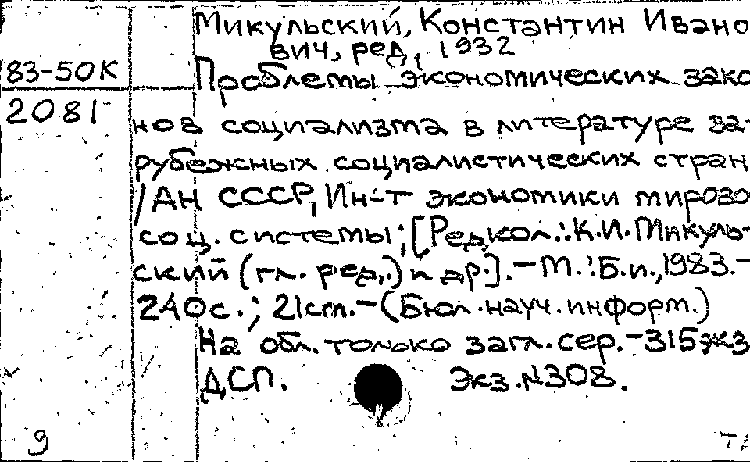 Микульский, Константин Ивано
вич, ред, 1932
83-50К
Проблемы экономических зако
2081
нов социализма в литературе за-
рубежных социалистических стран
/АН СССР, Ин-т экономики мирово
соц. системы; [Редкол.: К.И. Микуль-
ский (гл. ред,.) и др.]. - М.: Б.и., 1983.-
240с.; 21ст.-(Бюл. науч. информ.)
На обл. только загл. сер.-315экз
ДСП. Экз.N308.
9